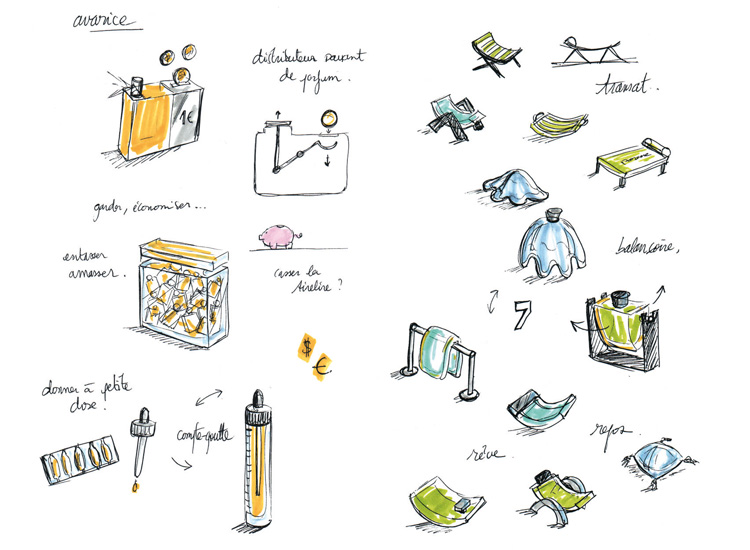 avarice
distributeur
de parfum.
1€
garder, économiser...
entasser
amasser.
casser la
tirelire ?
$
€
donner à petite
dose.
compte-goutte
transat..
balançoire,
rêve
repos